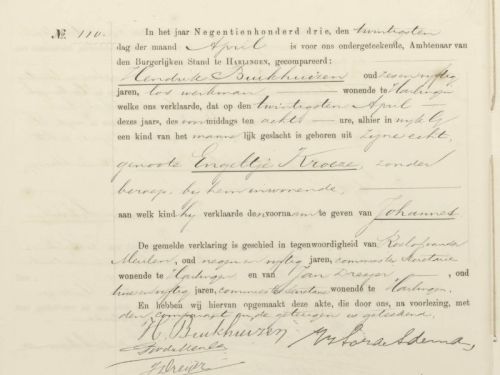 № 110.
In het jaar Negentienhonderd drie, den twintigsten
dag der maand April is voor ons ondergeteekende, Ambtenaar van
den Burgerlijken Stand te HARLINGEN, gecompareerd:
Hendrik Buikhuizen oud
jaren, los werkman wonende te Harlingen
welke ons verklaarde, dat op den twintigsten April
dezes jaars, des voormiddags ten acht ure, alhier in wijk G
een kind van het mannelijk geslacht is geboren uit zijne echt
genoote Engeltje Kroeze, zonder
beroep, bij hem inwonende,
aan welk kind hij verklaarde den voornaam te geven van Johannes
De gemelde verklaring is geschied in tegenwoordigheid van Roelof van der
Meulen, oud negen en vijftig jaren, commies ter Secretarie
wonende te Harlingen en van Jan Dreyer, oud
jaren, commies ter Secretarie wonende te Harlingen.
En hebben wij hiervan opgemaakt deze akte, die door ons, na voorlezing, met
den comparant en de getuigen is geteekend.
H. Buikhuizen
RvdMeulen
JDreyer